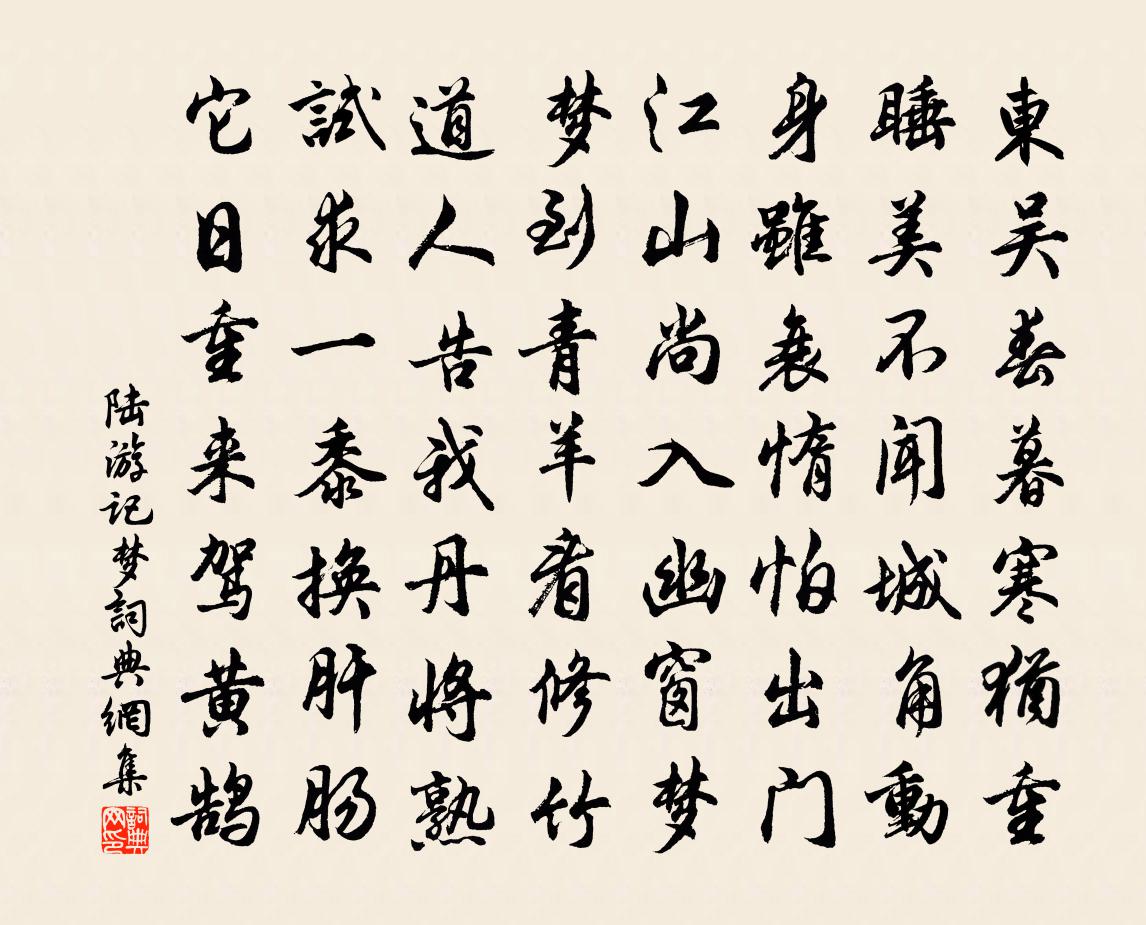 東吴春暮寒猶重
睡美不闻城角動
身雖衰惰怕出门
江山尚入幽窗梦
梦到青羊看修竹
道人告我丹将熟
試求一黍换肝肠
它日重来駕黄鹄
陆游记梦詞典網集
詞典网印